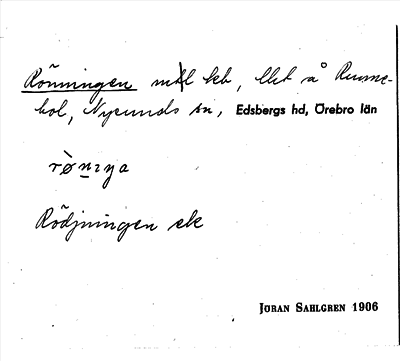 Rönningen mfl kb, llet å Rumme-
bol, Nysunds sn, Edsbergs hd, Örebro län
Rödjningen ek
JÖRAN SAHLGREN 1906